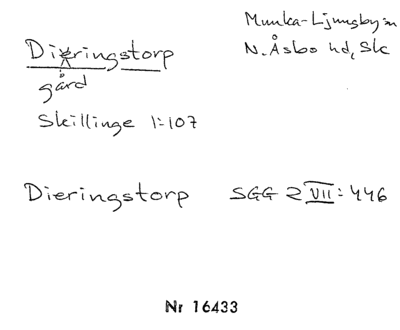 Munka-Ljungby sn
Dieringstorp N. Åsbo hd, Sk
gård
Skillinge 1:107
Dieringstorp SGG 2 VII:446
Nr 16433